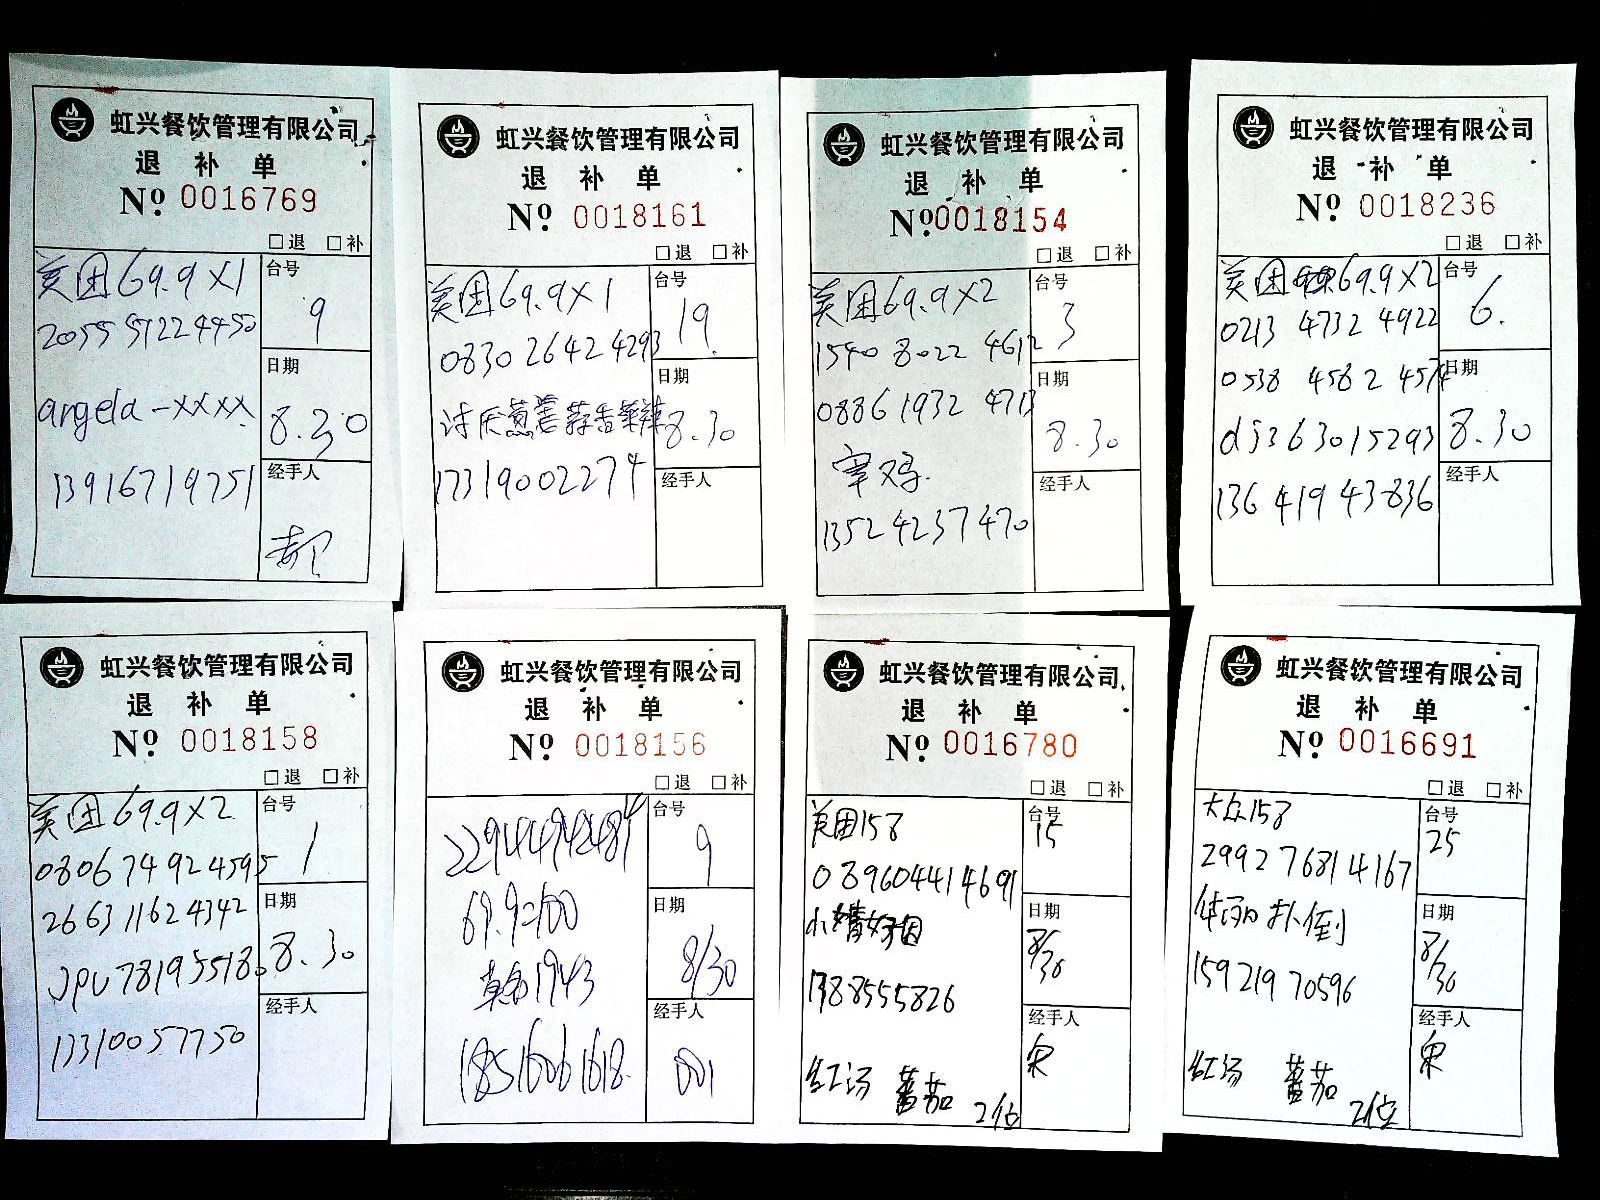 虹兴餐饮管理有限公司
退 补 单
№ 0016769
□退 □补
美团69.9×1
2055 5122 4450
angela-xxxx
13916719751
台号
9
日期
8.30
经手人
虹兴餐饮管理有限公司
退 补 单
№ 0018161
□退 □补
美团69.9×1
0830 2642 4293
讨厌葱姜蒜香菜辣
17319002274
台号
19
日期
8.30
经手人
虹兴餐饮管理有限公司
退 补 单
№ 0018154
□退 □补
美团69.9×2
1540 8022 4612
0886 1932 4713
宰鸡
13524237470
台号
3
日期
8.30
经手人
虹兴餐饮管理有限公司
退 补 单
№ 0018236
□退 □补
美团69.9×2
0213 4732 4922
0538 4582 4574
dj363015293
13641943836
台号
6.
日期
8.30
经手人
虹兴餐饮管理有限公司
退 补 单
№ 0018158
□退 □补
美团69.9×2
0806 7492 4595
2663 1162 4342
JPU781955180
13310057750
台号
1
日期
8.30
经手人
虹兴餐饮管理有限公司
退 补 单
№ 0018156
□退 □补
69.9=100
18516061618
台号
9
日期
8/30
经手人
001
虹兴餐饮管理有限公司
退 补 单
№ 0016780
□退 □补
美团158
089604414691
1388555826
红汤 蕃茄 2位
台号
15
日期
8/30
经手人
宋
虹兴餐饮管理有限公司
退 补 单
№ 0016691
□退 □补
大众158
2992 7681 4167
扑倒
15921970596
红汤 蕃茄
2位
台号
25
日期
8/30
经手人
宋